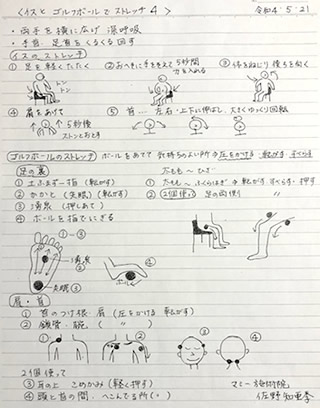 〈イスと ゴルフボールで ストレッチ 4〉 令和4・5・21
・両手を横に広げ 深呼吸
・手首・足首をくるくる回す
イスのストレッチ
① 足を軽くたたく ② おへそに手をそえて5秒間 力を入れる ③ 体をねじり 後ろを向く
トン トン
④ 肩をあげて ⑤ 首…左右・上下に伸ばし、大きくゆっくり回転
5秒後
ストンとおとす
ゴルフボールのストレッチ ボールをあてて 気持ちのよい所を 圧をかける・転がす・すべらす
足の裏
① 土ふまず〜指 (転がす)
② かかと (失眠) (転がす)
③ 湧泉 (押しあて)
④ ボールを指でにぎる
太もも〜ひざ
① 太もも〜ふくらはぎ 転がす すべらす・押す
② 2個使って 足の両側 〃
①〜③
湧泉
失眠
④
ボール
肩・首
① 首のつけ根・肩 (圧をかける 転がす)
② 鎖骨・脇 ( 〃 )
① ② ③ ④
2個使って
③ 耳の上 こめかみ (軽く押す)
④ 頭と首の間・へこんでる所 ( 〃 )
マミー施術院
佐野知亜季